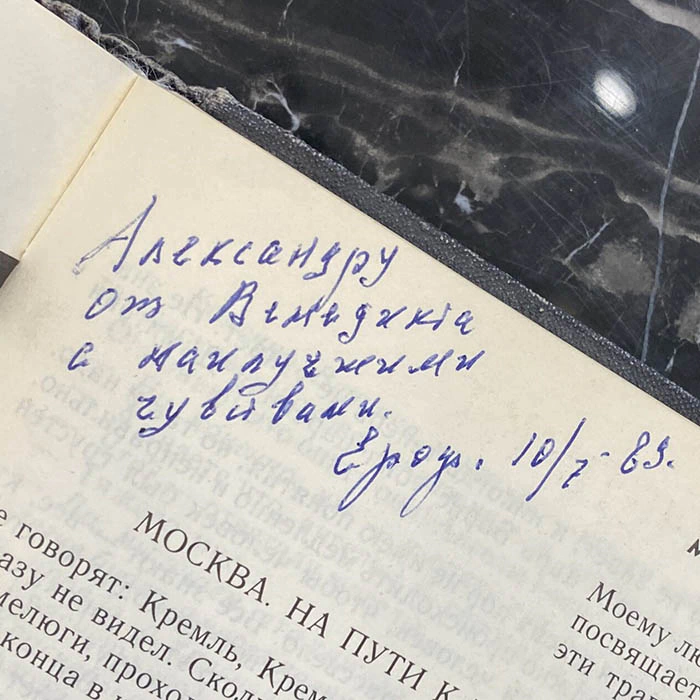 Александру
от Венедикта
с наилучшими
чувствами.
Ероф. 10/7-89.
МОСКВА. НА ПУТИ К
говорят: Кремль, Крем
не видел. Скол
прохо
конца в
Моему
посвящает
эти